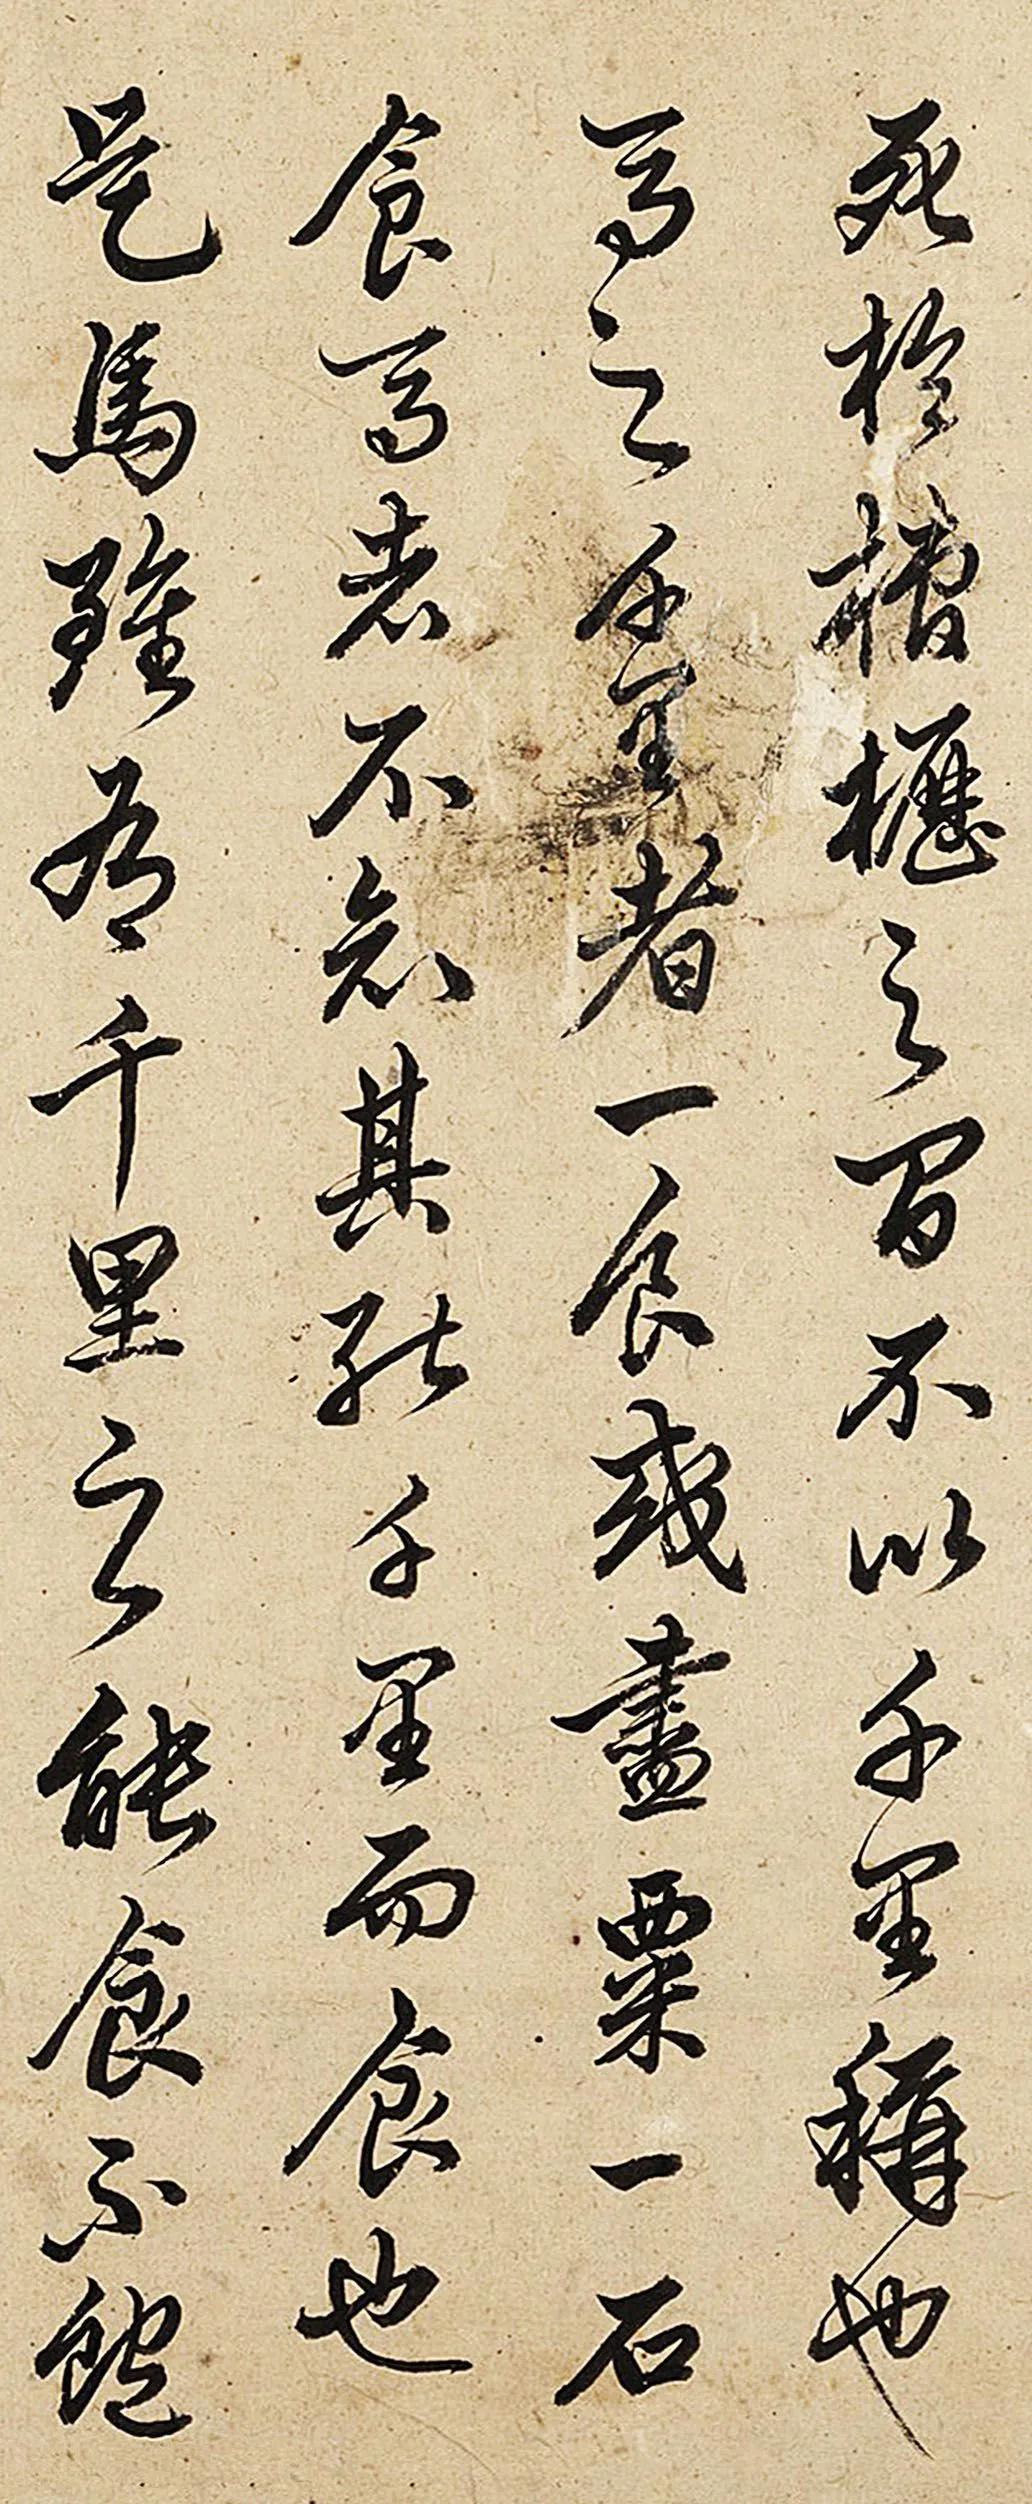 死於槽櫪之間不以千里稱也
馬之千里者一食或盡粟一石
食馬者不知其能千里而食也
是馬雖有千里之能食不飽